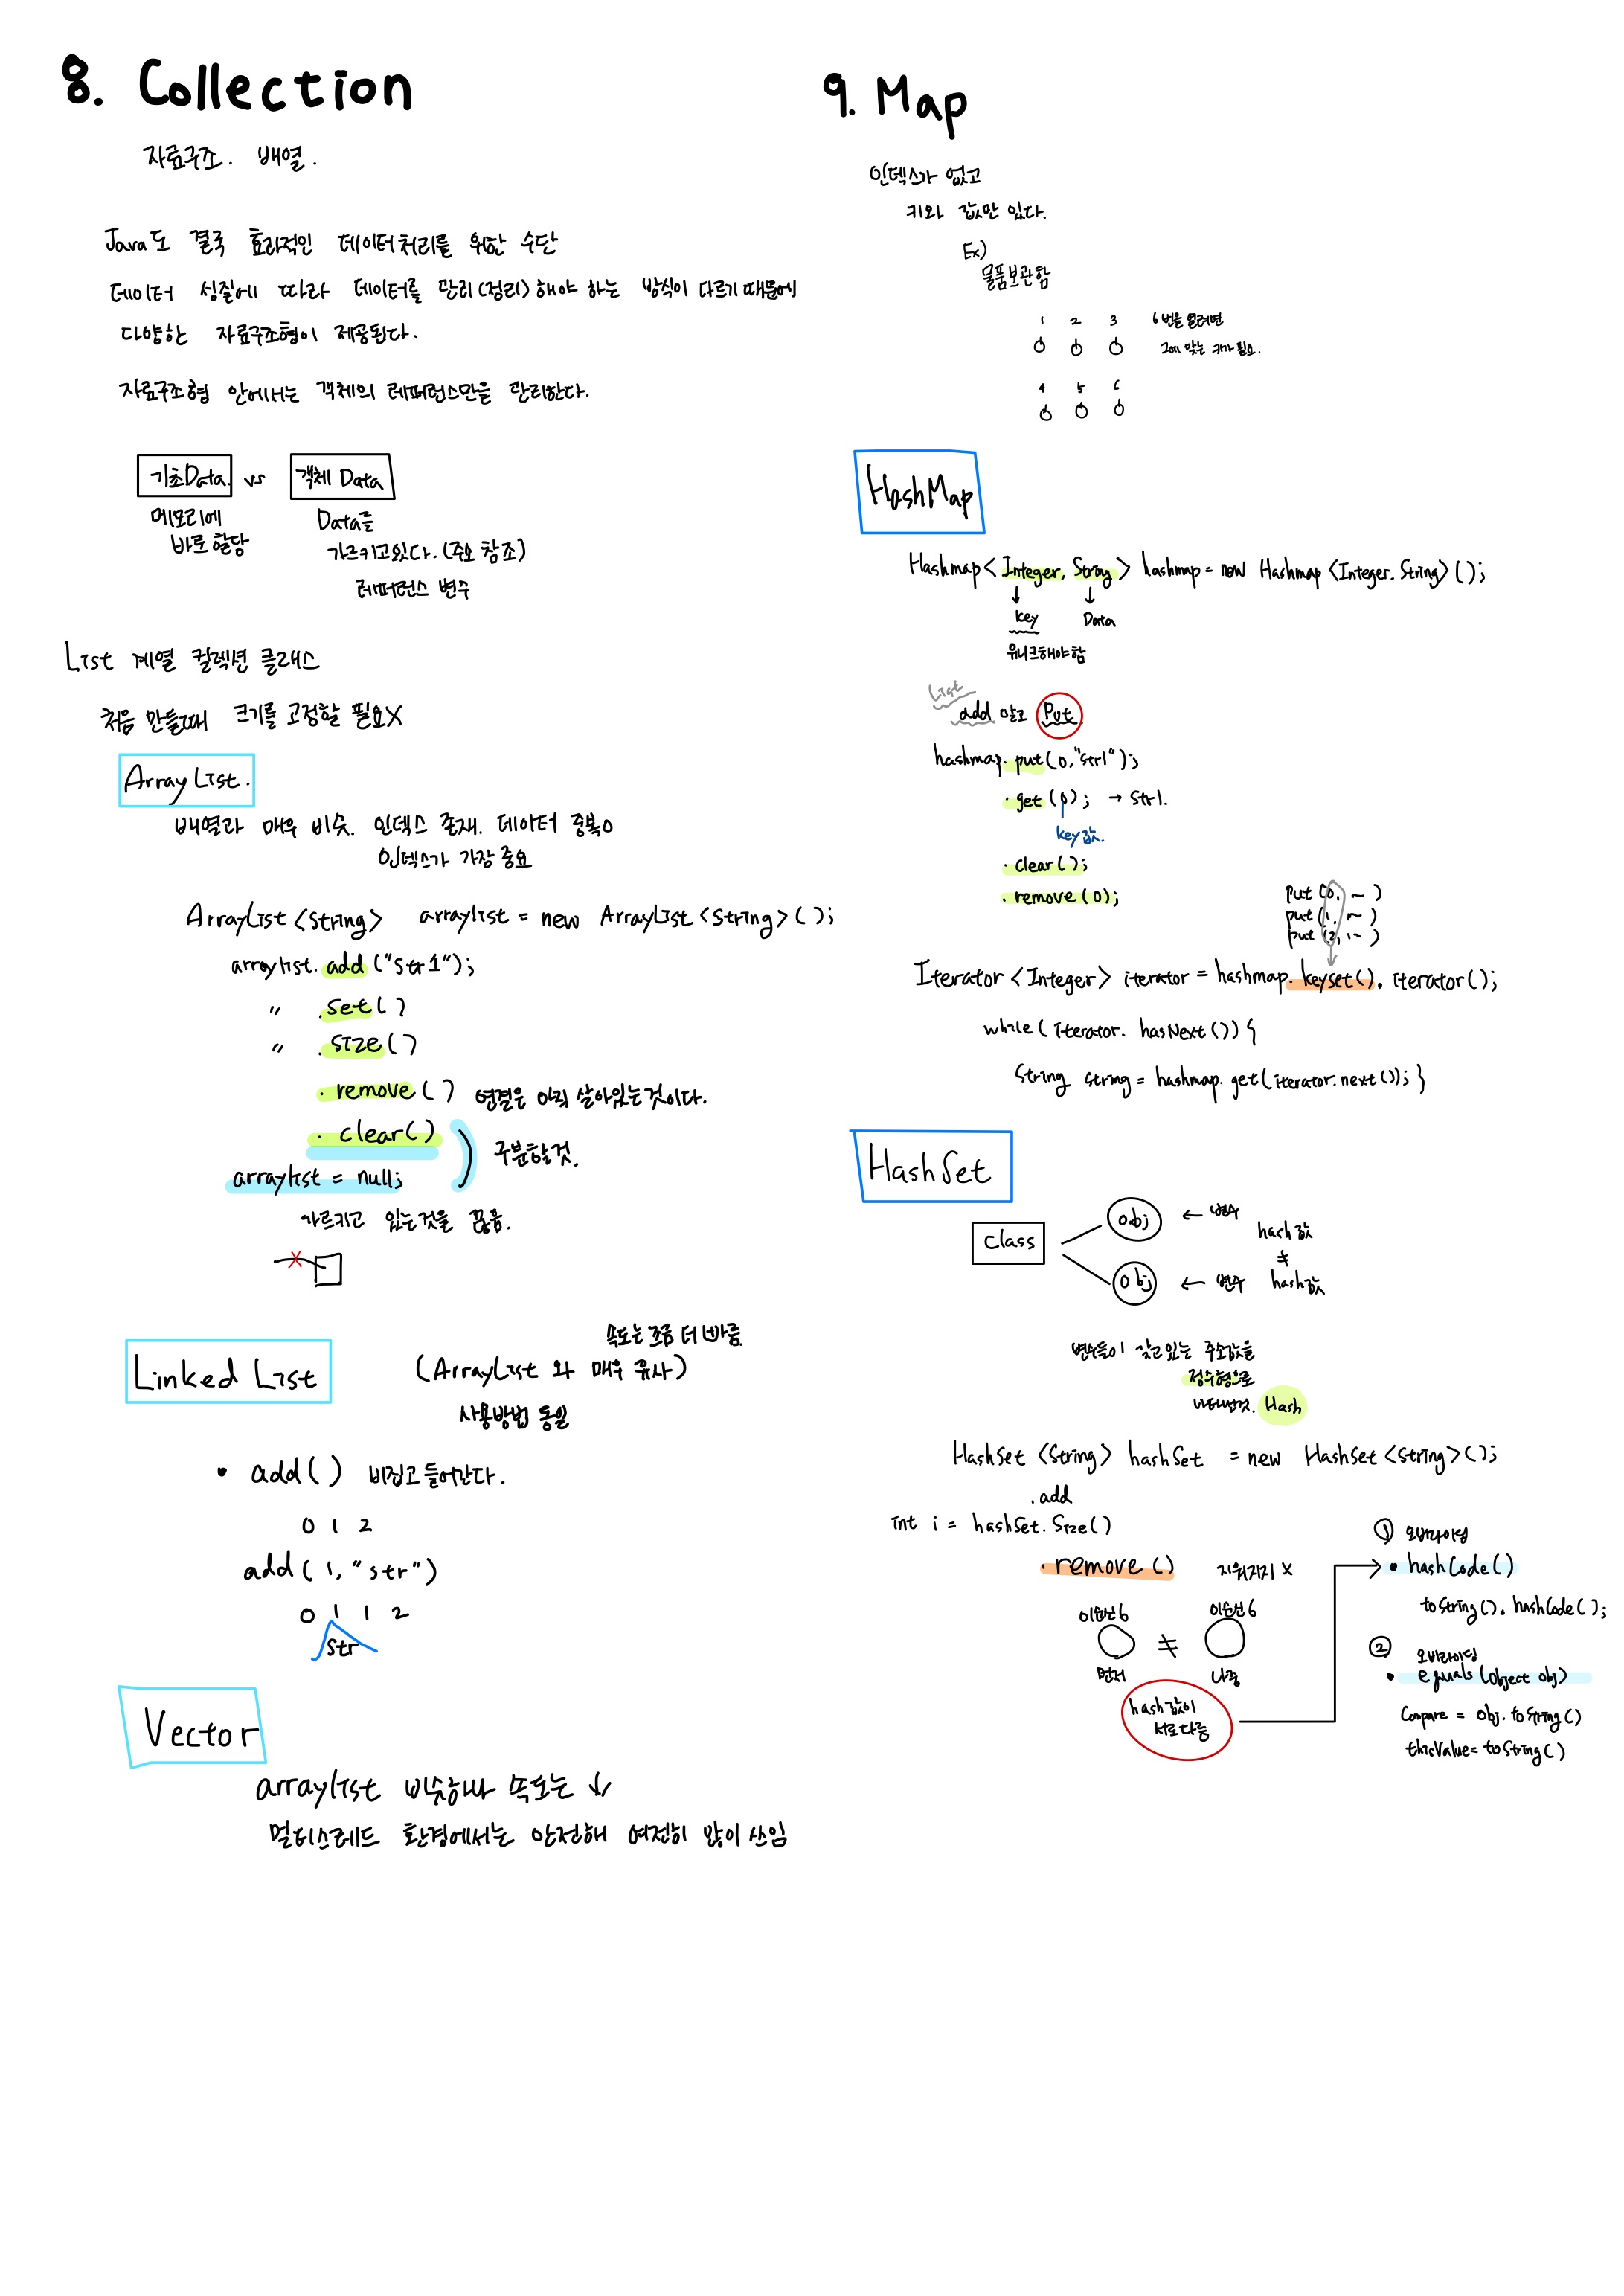 8. Collection
자료구조. 배열.
Java도 결국 효과적인 데이터처리를 위한 수단
데이터 성질에 따라 데이터를 관리(정리)해야 하는 방식이 다르기 때문에
다양한 자료구조형이 제공된다.
자료구조형 안에서는 객체의 레퍼런스만을 관리한다.
기초Data. vs 객체 Data
메모리에
바로 할당
Data를
가르키고있다. (주소 참조)
레퍼런스 변수
List 계열 컬렉션 클래스
처음 만들때 크기를 고정할 필요X
ArrayList.
배열과 매우 비슷. 인덱스 존재. 데이터 중복o
인덱스가 가장 중요
ArrayList<String> arraylist = new ArrayList<String>();
arraylist.add("Str1");
" .set()
" .size()
.remove() 연결은 아직 살아있는것이다.
.clear()
구분할것.
arraylist = null;
가르키고 있는것을 끊음.
Linked List
속도는 조금 더 빠름
(ArrayList 와 매우 유사)
사용방법 동일
• add() 비집고 들어간다.
0 1 2
add(1, "str")
0 1 1 2
Str
Vector
arraylist 비슷하나 속도는 ↓
멀티스레드 환경에서는 안전해 여전히 많이 쓰임
9. Map
인덱스가 없고
키와 값만 있다.
Ex)
물품보관함
1 2 3
6번을 열려면
그에 맞는 키가 필요.
4 5 6
HashMap
Hashmap<Integer, String> hashmap = new Hashmap<Integer.String>();
↓ ↓
key Data
유니크해야함
List
add 말고 Put
hashmap.put(0,"str1");
.get(0); → Str1.
key값.
.clear();
.remove(0);
put(0, ~ )
put(1, ~ )
put(2, ~ )
Iterator<Integer> iterator = hashmap.keyset().iterator();
while(iterator. hasNext()){
String string = hashmap.get(iterator.next()); }
HashSet
Class
obj ← 변수
hash값
≠
obj ← 변수 hash값
변수들이 갖고 있는 주소값을
정수형으로
나타낸것. Hash
HashSet <String> hashSet = new HashSet<String>();
.add
int i = hashSet.Size()
.remove() 지워지지 X
이순신6 이순신6
≠
먼저 나중
hash값이
서로다름
① 오버라이딩
• hashCode()
toString().hashCode();
② 오버라이딩
• equals(Object obj)
Compare = obj.toString()
thisValue= toString()